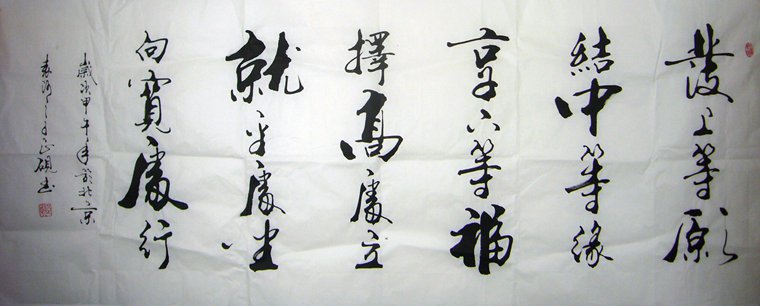 發上等愿
結中等緣
享下等福
擇高處立
就平處坐
向寬處行
歲次甲午年於北京